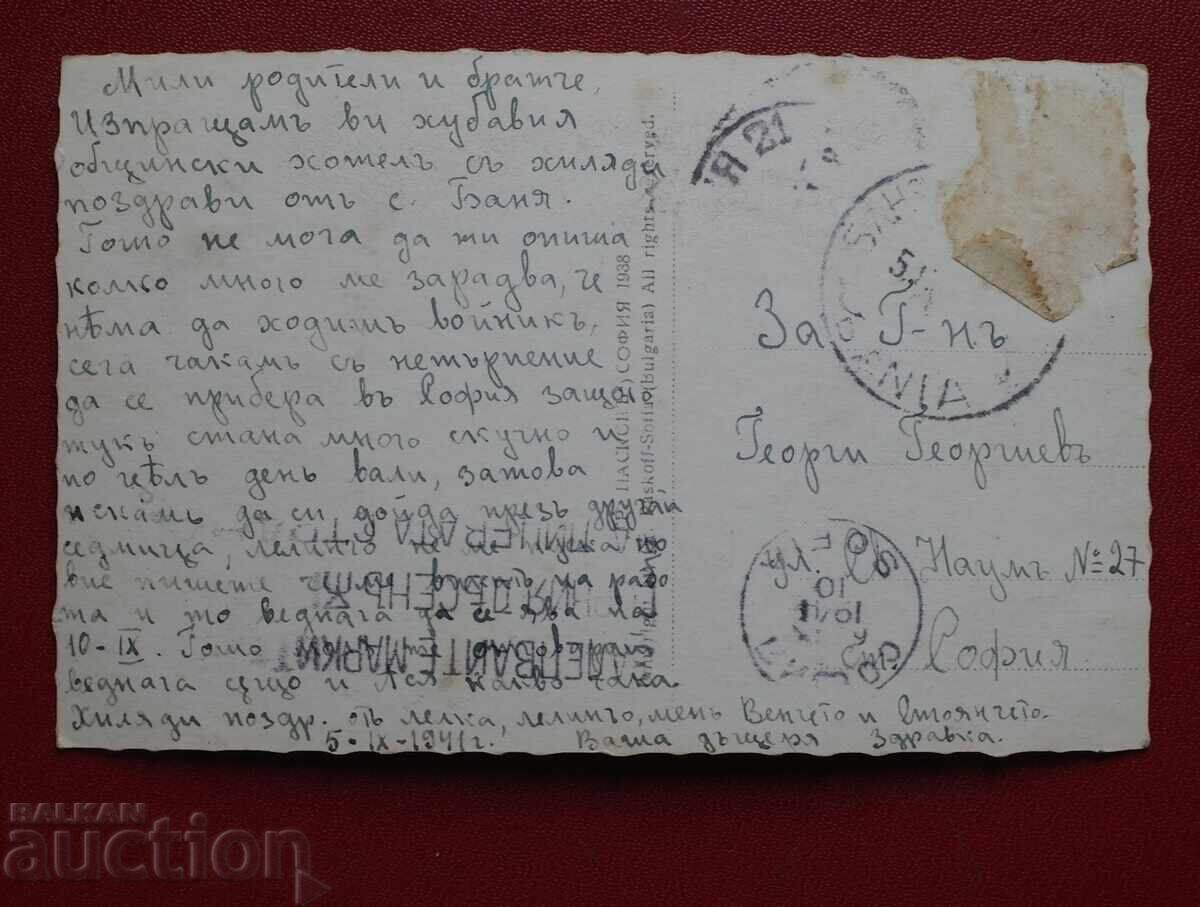 Мили родители и братче,
Изпращамъ ви хубавия
общински хотелъ съ хиляди
поздрави отъ с. Баня.
Гошо не мога да ти опиша
колко много ме зарадва, че
нѣма да ходишъ войникъ,
сега чакамъ съ нетърпение
да се прибера въ София защото
тукъ стана много скучно и
по цѣлъ день вали, затова
искамъ да си дойда презъ другай
седмица, лелинчо не ме пуска но
вие пишете че ме на рабо
та и то веднага да се явя на
10-IX. Гошо
веднага също и Лея какво чака
Хиляди поздр. отъ лелка, лелинчо, мень Венчето и Стоянчето.
5-IX-1941 г. Ваша дъщеря Здравка.
ПАСКОВ) СОФИЯ 1938
Paskoff-Sofia (Bulgaria) All rights reserved.
За Г-нъ
Георги Георгиевъ
ул. Св. Наумъ № 27
София
5.
BANIA
10
ЛЕПВАЙТЕ МАРКИТѢ
BALKAN
auction